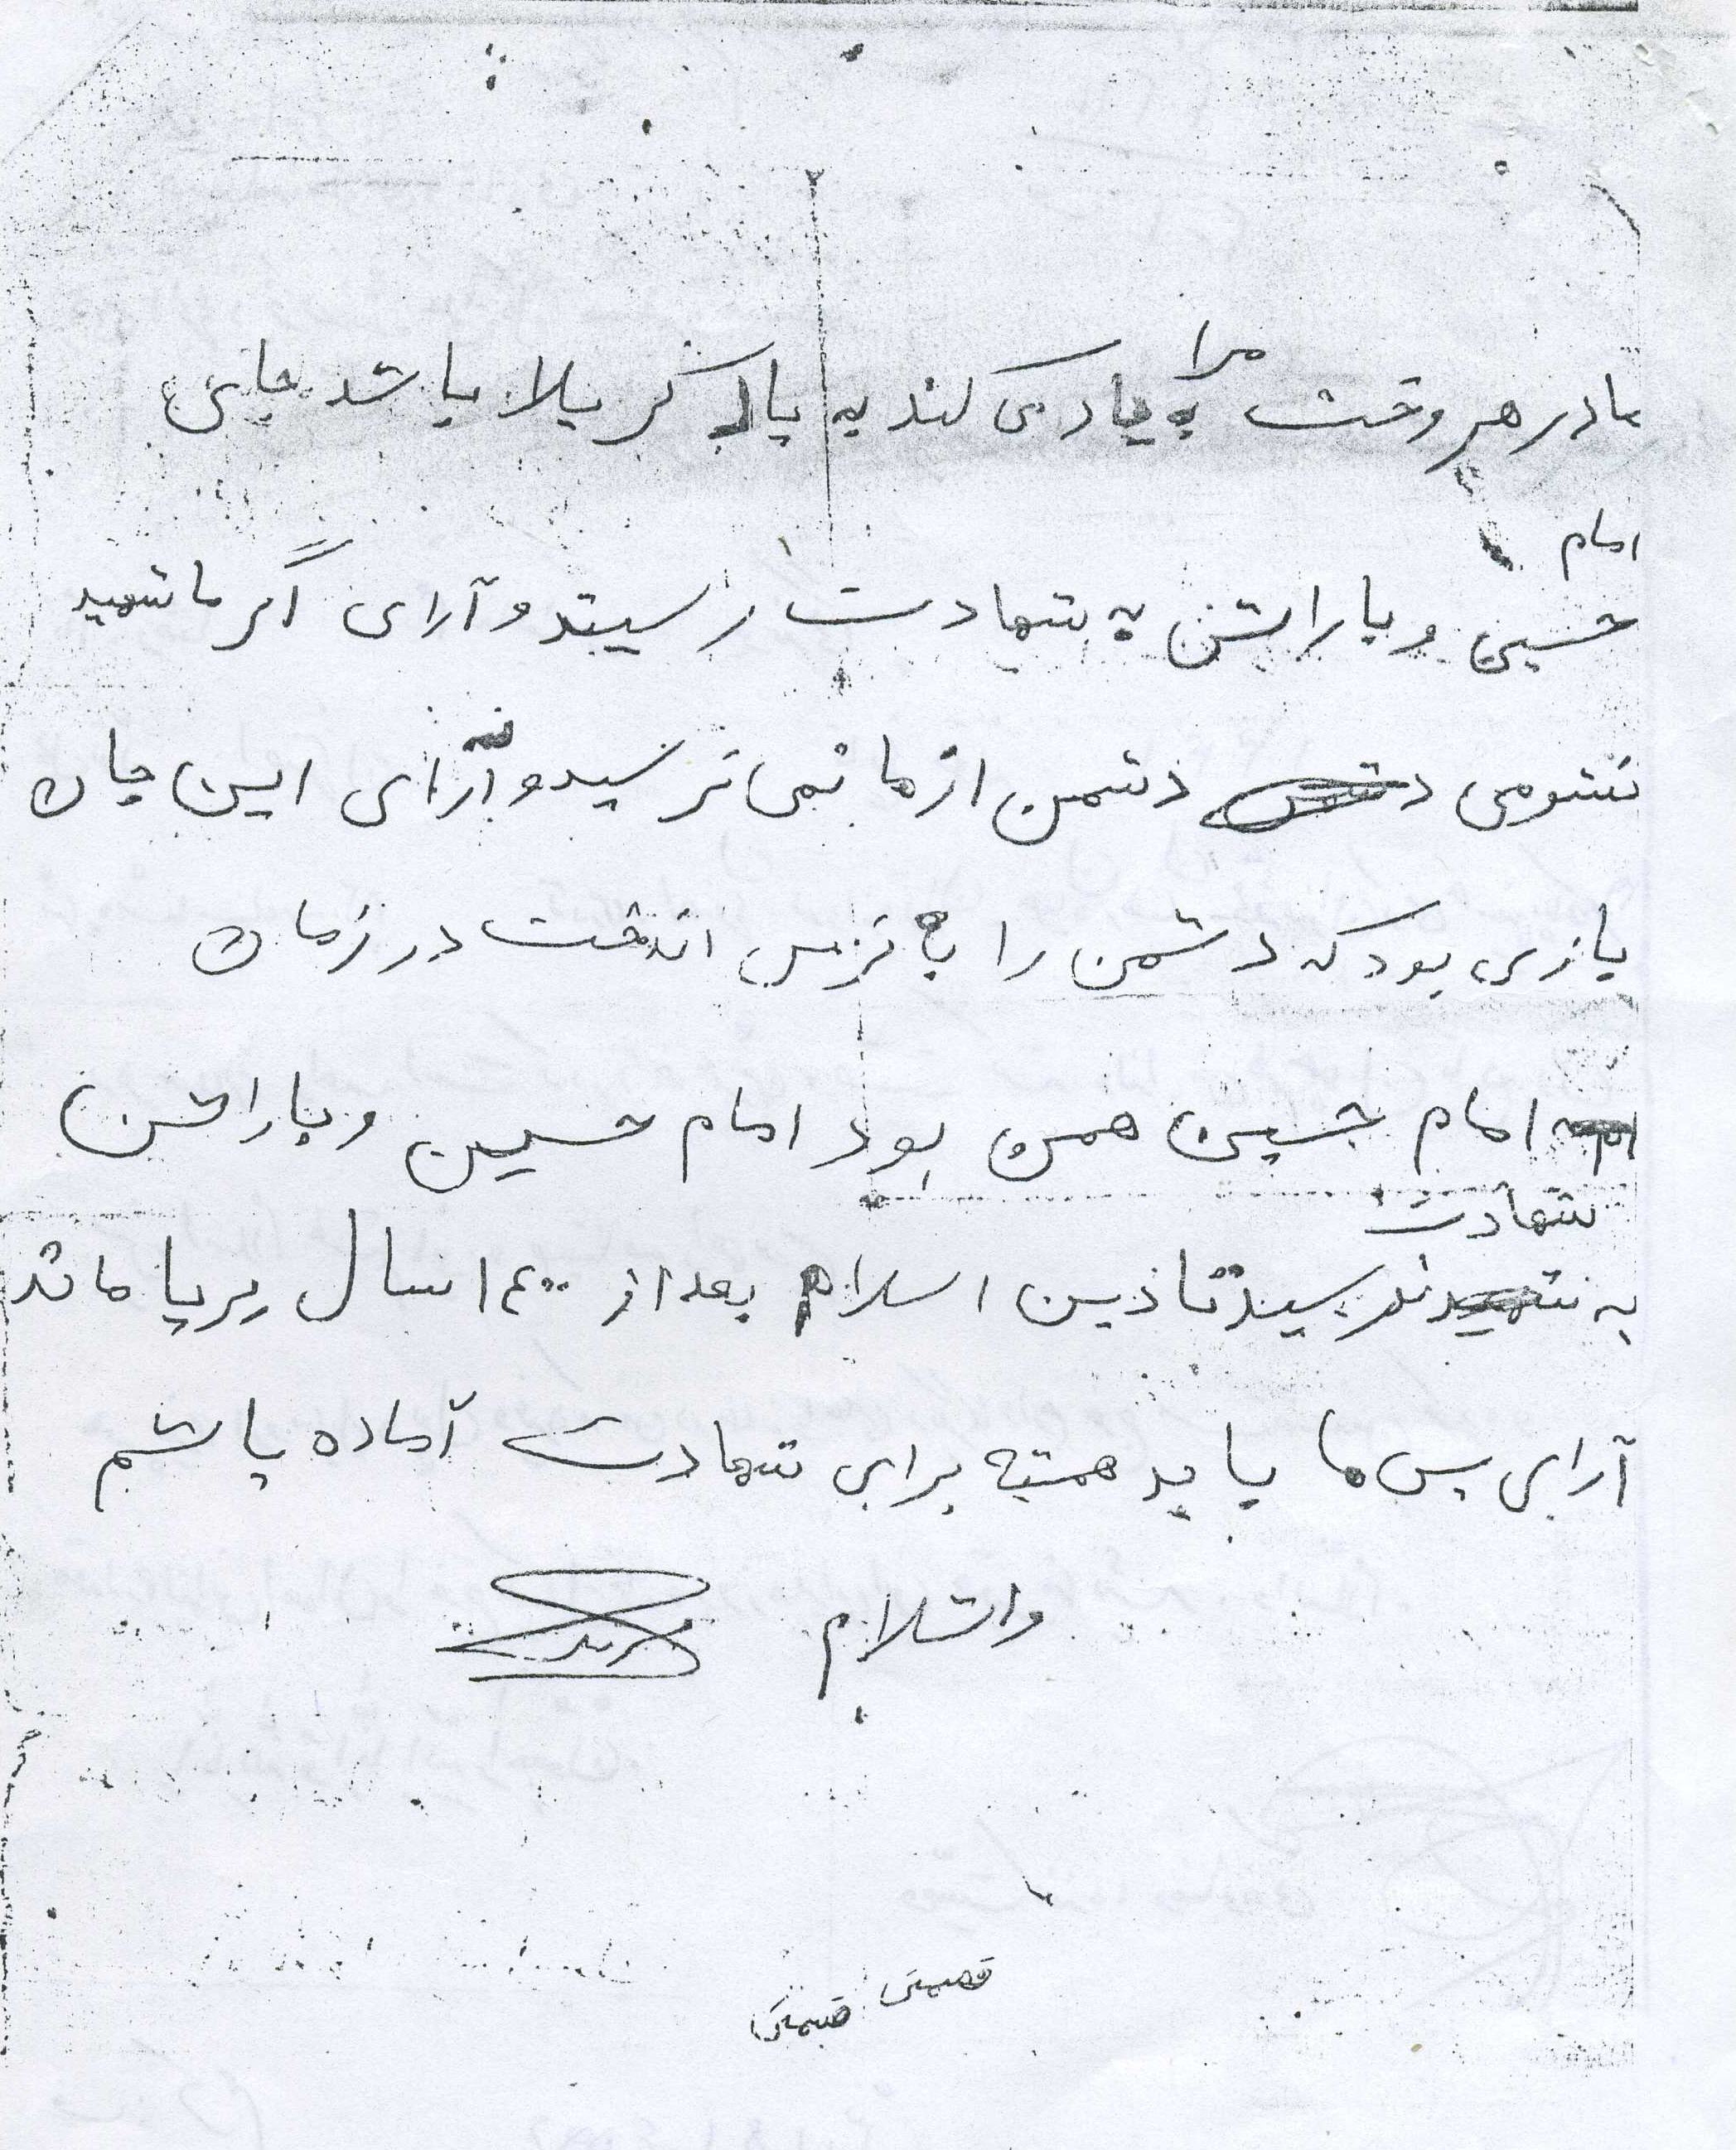 مرا
مادر هر وقت به یاد می کند به یاد کربلا باشد جای
امام
حسین و یاراتش به شهادت رسیتد و آرای اگر ما شهید
نشومی دشمن از ما نمی ترسید و نه آرای این جان
یازی بود که دشمن را به ترس انداخت در زمان
امام حسین همن بود امام حسین و یاراتش
شهادت
به رسید تا دین اسلام بعد از ۱۴۰۰ سال برپا ماند
آرای پس ما باید همشه برای شهادت آماده باشم
والسلام